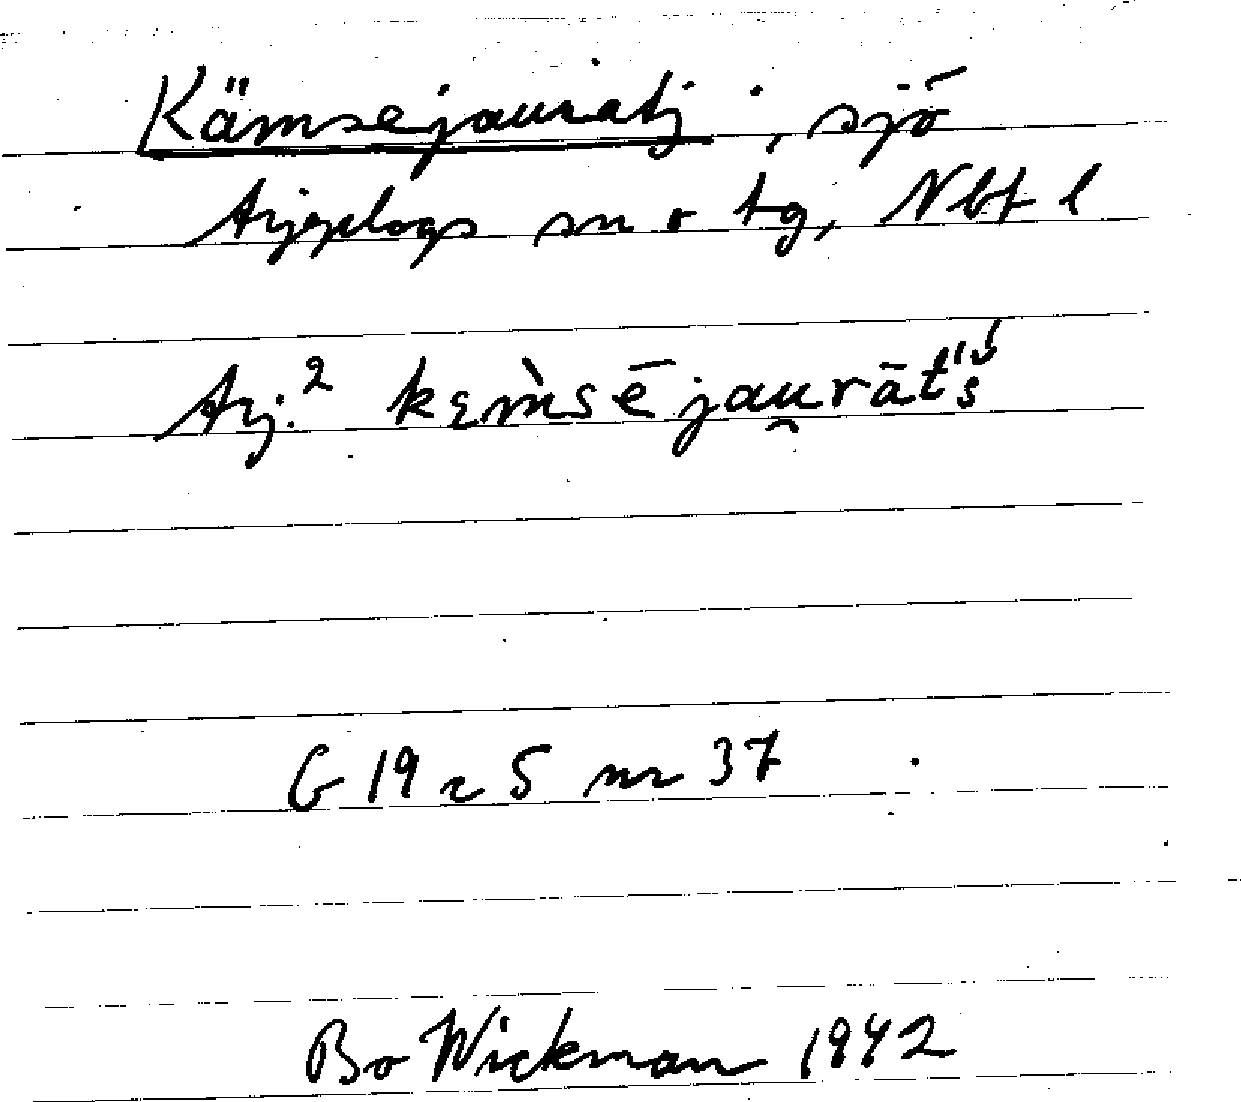 Kämsejauratj, sjö
Arjeplogs sn o tg, Nbt l
Arj.² kęm̀sējau̯rāt́ś
G 19 c 5 nr 37
Bo Wickman 1942